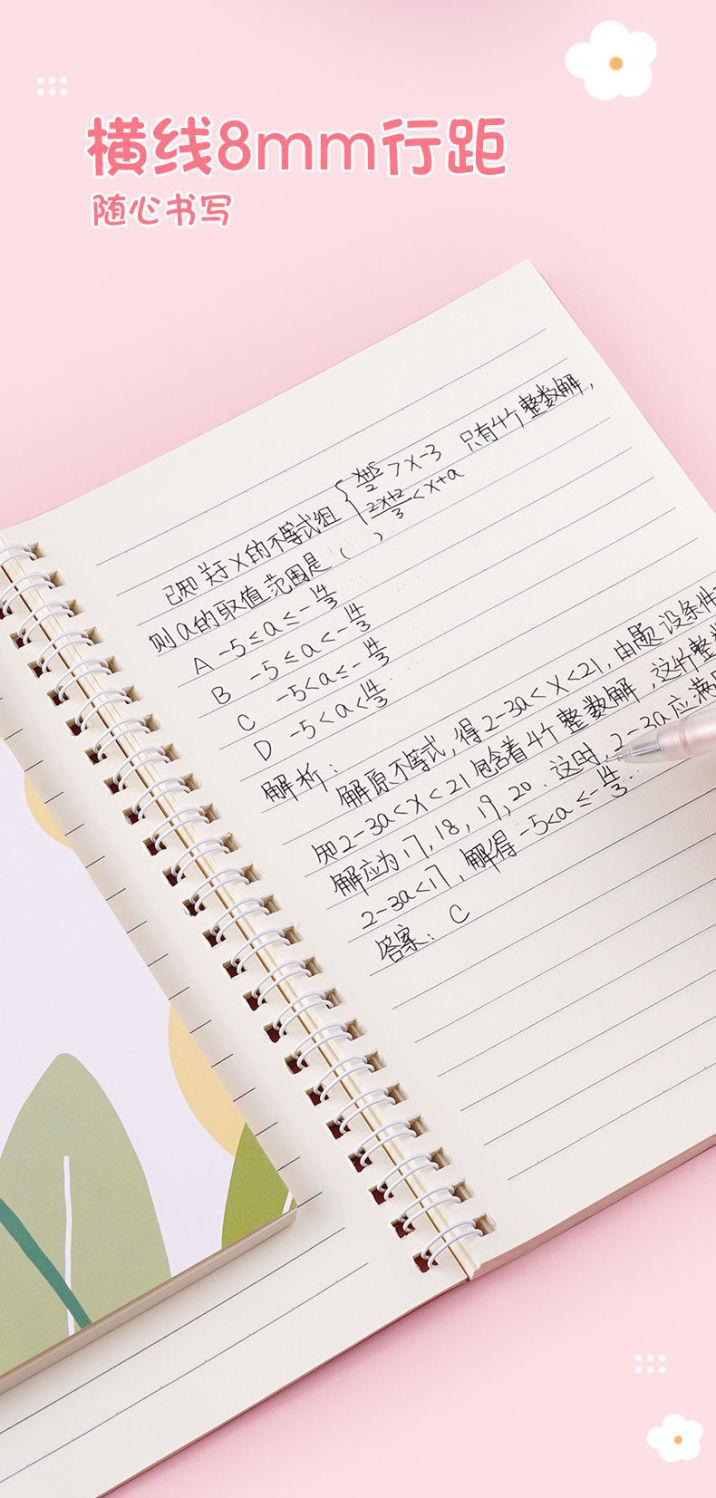 横线8mm行距
随心书写
已知关于x的不等式组 { x+5/2 > x-3 只有4个整数解,
2x+2/3 < x+a
则a的取值范围是 ( )
A -5≤a≤-14/3
B -5≤a<-14/3
C -5<a≤-14/3
D -5<a<14/3
解析:
解原不等式,得2-3a<x<21,由题设条件
知2-3a<x<21包含着4个整数解,这4个整数
解应为17,18,19,20.这时,2-3a应满
2-3a<17,解得-5<a≤-14/3...
答案:C